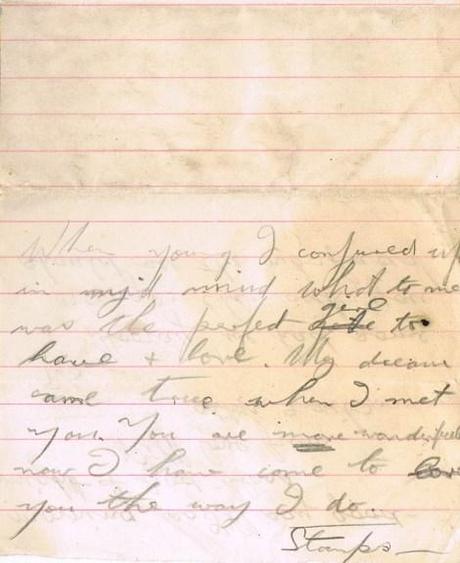 When young I confured up
in my mind what to me
was the perfect to
have & love. My dream
came true when I met
you. You are more wonderful
now I have come to love
you the way I do.
Stamps